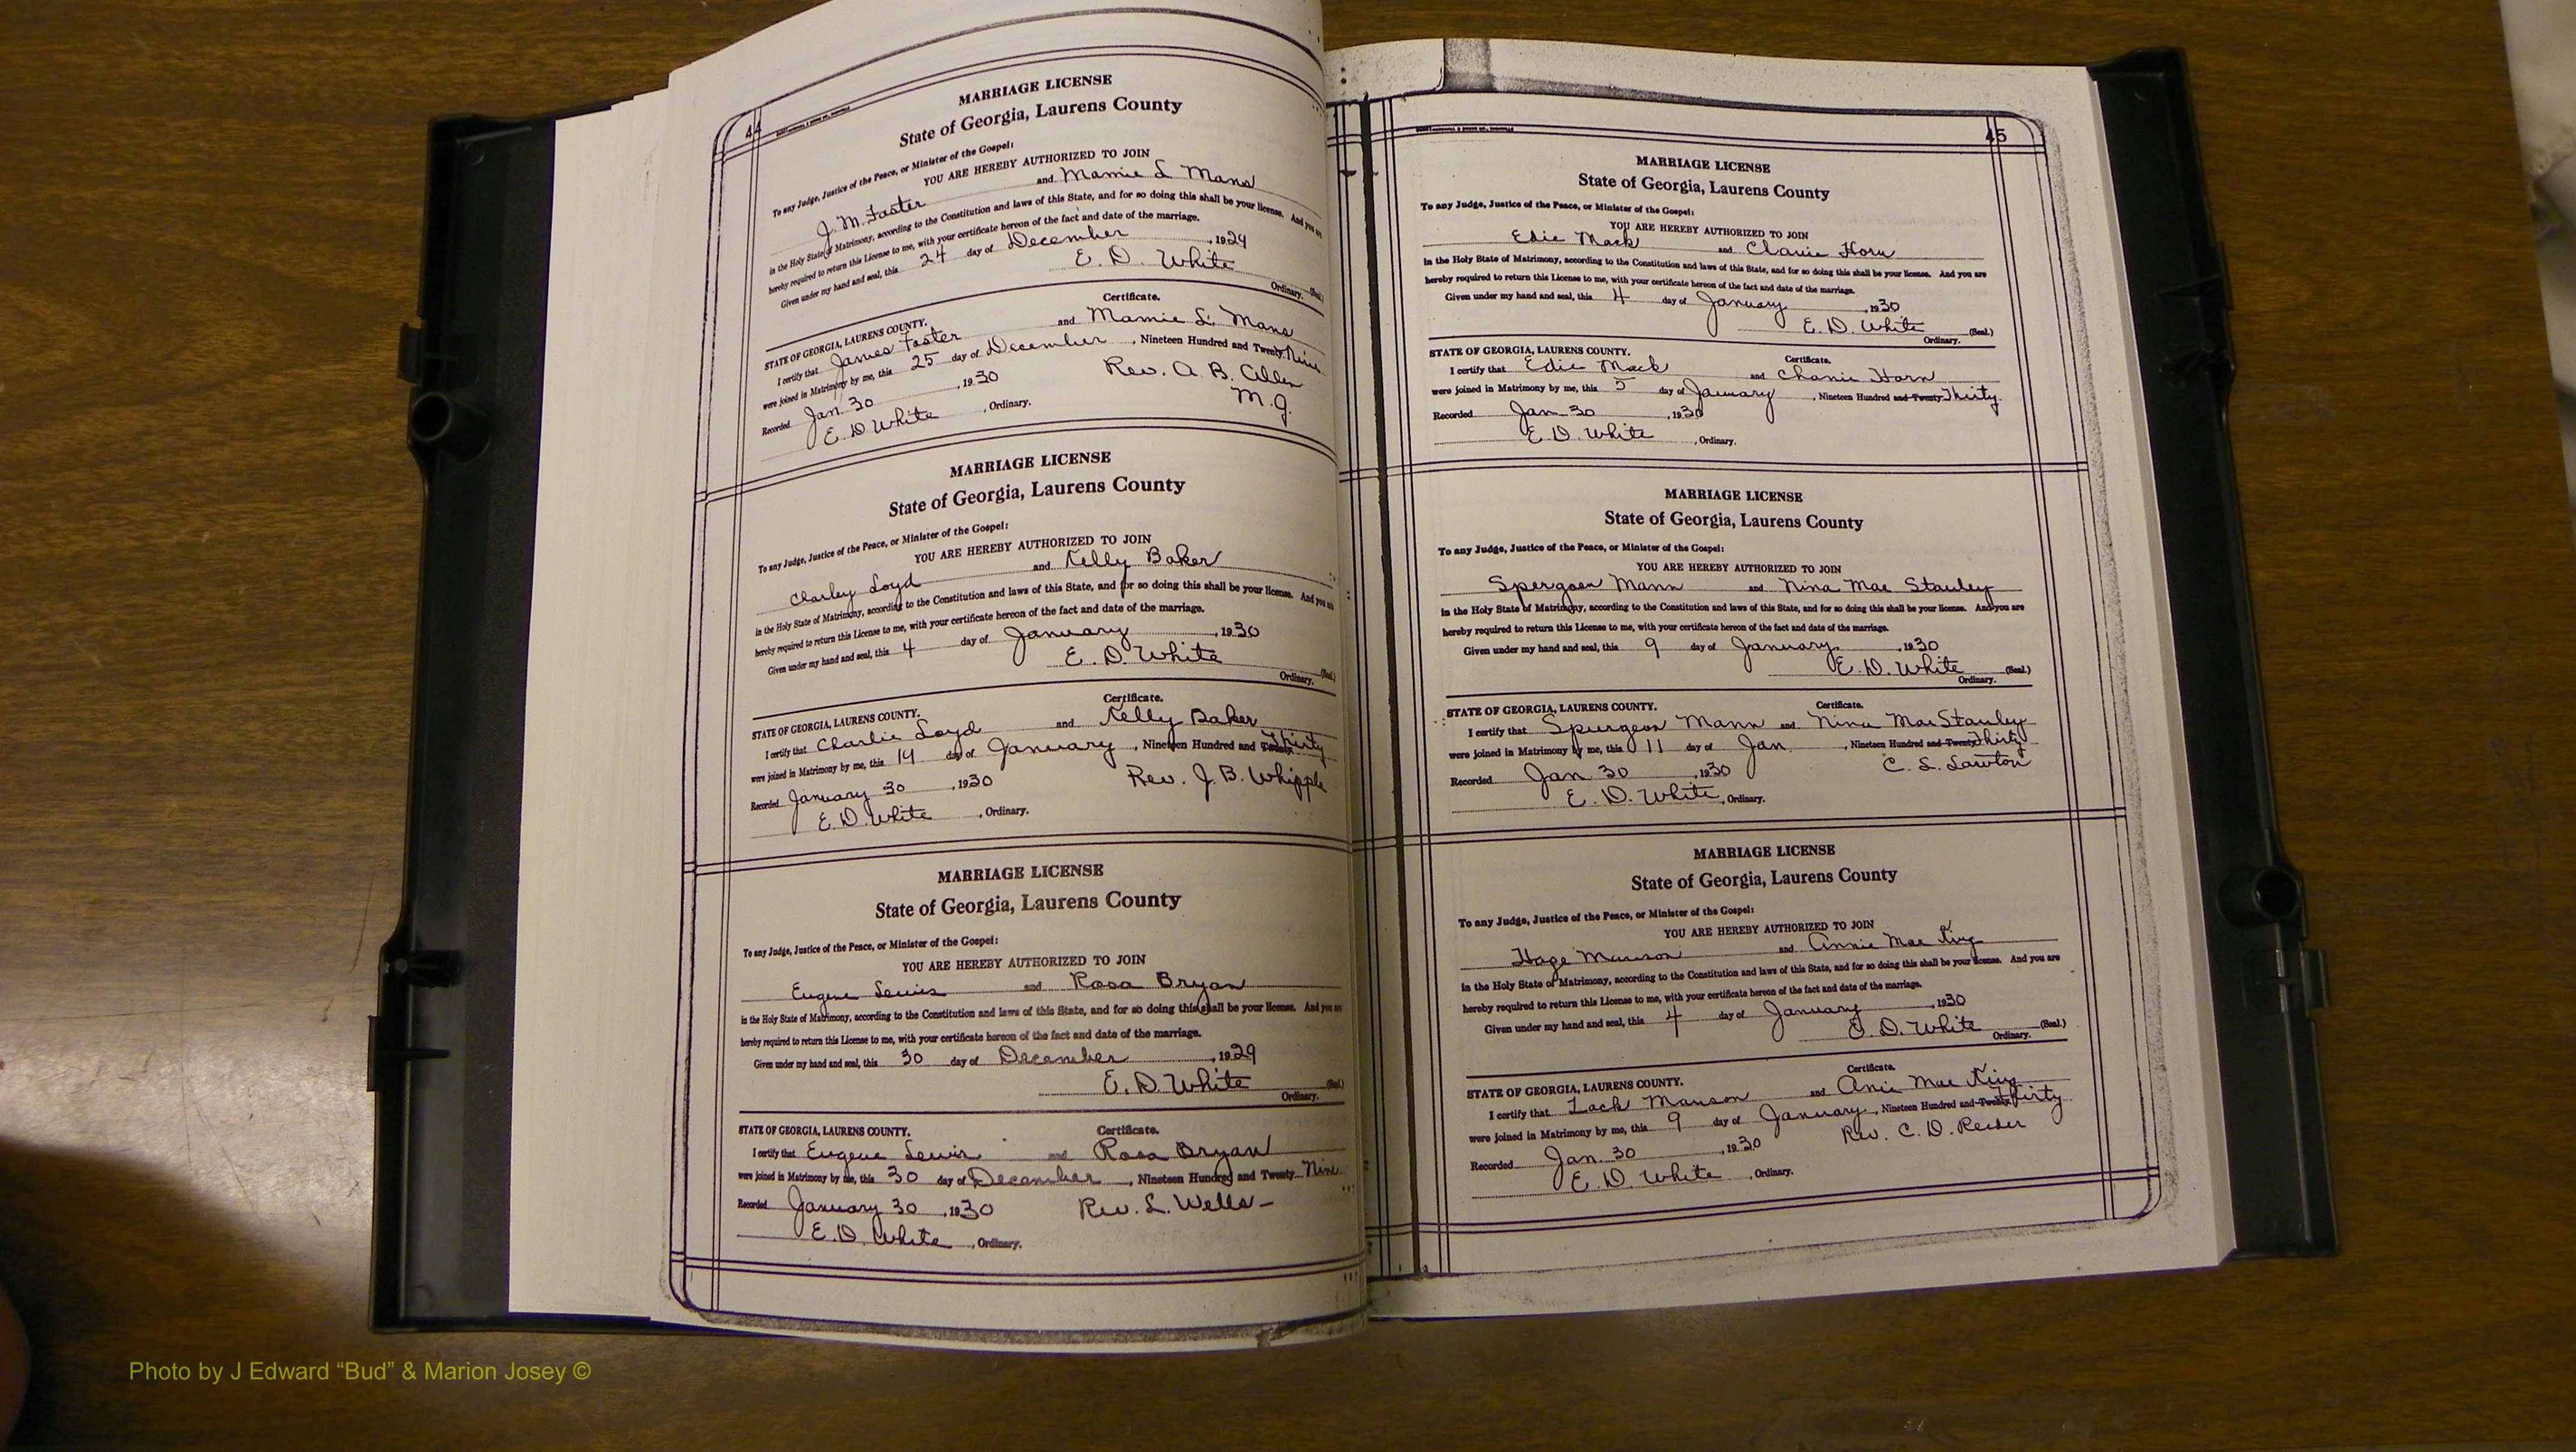 44
MARRIAGE LICENSE
State of Georgia, Laurens County
To any Judge, Justice of the Peace, or Minister of the Gospel:
YOU ARE HEREBY AUTHORIZED TO JOIN
J. M. Faster and Mamie L Mans
in the Holy State of Matrimony, according to the Constitution and laws of this State, and for so doing this shall be your license. And you are
hereby required to return this License to me, with your certificate hereon of the fact and date of the marriage.
Given under my hand and seal, this 24 day of December, 1929
E. D. White (Seal.)
Ordinary.
Certificate.
STATE OF GEORGIA, LAURENS COUNTY.
I certify that James Faster and Mamie L. Mans
were joined in Matrimony by me, this 25 day of December, Nineteen Hundred and Twenty Nine
Recorded Jan. 30, 1930 Rev. A. B. Allen
E. D White, Ordinary. M. G.
MARRIAGE LICENSE
State of Georgia, Laurens County
To any Judge, Justice of the Peace, or Minister of the Gospel:
YOU ARE HEREBY AUTHORIZED TO JOIN
Charley Loyd and Kelly Baker
in the Holy State of Matrimony, according to the Constitution and laws of this State, and for so doing this shall be your license. And you are
hereby required to return this License to me, with your certificate hereon of the fact and date of the marriage.
Given under my hand and seal, this 4 day of January, 1930
E. D. White (Seal.)
Ordinary.
Certificate.
STATE OF GEORGIA, LAURENS COUNTY.
I certify that Charlie Loyd and Kelly Baker
were joined in Matrimony by me, this 14 day of January, Nineteen Hundred and Twenty Thirty
Recorded January 30, 1930 Rev. J. B. Whipple
E. D. White, Ordinary.
MARRIAGE LICENSE
State of Georgia, Laurens County
To any Judge, Justice of the Peace, or Minister of the Gospel:
YOU ARE HEREBY AUTHORIZED TO JOIN
Eugene Lewis and Rosa Bryan
in the Holy State of Matrimony, according to the Constitution and laws of this State, and for so doing this shall be your license. And you are
hereby required to return this License to me, with your certificate hereon of the fact and date of the marriage.
Given under my hand and seal, this 30 day of December, 1929
E. D. White (Seal.)
Ordinary.
Certificate.
STATE OF GEORGIA, LAURENS COUNTY.
I certify that Eugene Lewis and Rosa Bryan
were joined in Matrimony by me, this 30 day of December, Nineteen Hundred and Twenty Nine
Recorded January 30, 1930 Rev. L. Wells
E. D. White, Ordinary.
45
MARRIAGE LICENSE
State of Georgia, Laurens County
To any Judge, Justice of the Peace, or Minister of the Gospel:
YOU ARE HEREBY AUTHORIZED TO JOIN
Edie Mack and Horn
in the Holy State of Matrimony, according to the Constitution and laws of this State, and for so doing this shall be your license. And you are
hereby required to return this License to me, with your certificate hereon of the fact and date of the marriage.
Given under my hand and seal, this 4 day of January, 1930
E. D. White (Seal.)
Ordinary.
STATE OF GEORGIA, LAURENS COUNTY. Certificate.
I certify that Edie Mack and Horn
were joined in Matrimony by me, this 5 day of January, Nineteen Hundred and Twenty Thirty.
Recorded Jan 30, 1930
E. D. White, Ordinary.
MARRIAGE LICENSE
State of Georgia, Laurens County
To any Judge, Justice of the Peace, or Minister of the Gospel:
YOU ARE HEREBY AUTHORIZED TO JOIN
Spergoen Mann and Nina Mae Stanley
in the Holy State of Matrimony, according to the Constitution and laws of this State, and for so doing this shall be your license. And you are
hereby required to return this License to me, with your certificate hereon of the fact and date of the marriage.
Given under my hand and seal, this 9 day of January, 1930
E. D. White (Seal.)
Ordinary.
STATE OF GEORGIA, LAURENS COUNTY. Certificate.
I certify that Spurgeon Mann and Nina Mae Stanley
were joined in Matrimony by me, this 11 day of Jan., Nineteen Hundred and Twenty Thirty
Recorded Jan 30, 1930 C. L. Lawton
E. D. White, Ordinary.
MARRIAGE LICENSE
State of Georgia, Laurens County
To any Judge, Justice of the Peace, or Minister of the Gospel:
YOU ARE HEREBY AUTHORIZED TO JOIN
Hage Manson and Annie Mae King
in the Holy State of Matrimony, according to the Constitution and laws of this State, and for so doing this shall be your license. And you are
hereby required to return this License to me, with your certificate hereon of the fact and date of the marriage.
Given under my hand and seal, this 4 day of January, 1930
E. D. White (Seal.)
Ordinary.
Certificate.
STATE OF GEORGIA, LAURENS COUNTY.
I certify that Zack Manson and Anie Mae King
were joined in Matrimony by me, this 9 day of January, Nineteen Hundred and Twenty Thirty
Recorded Jan. 30, 1930 Rev. C. D. Reeder
E. D. White, Ordinary.
Photo by J Edward “Bud” & Marion Josey ©